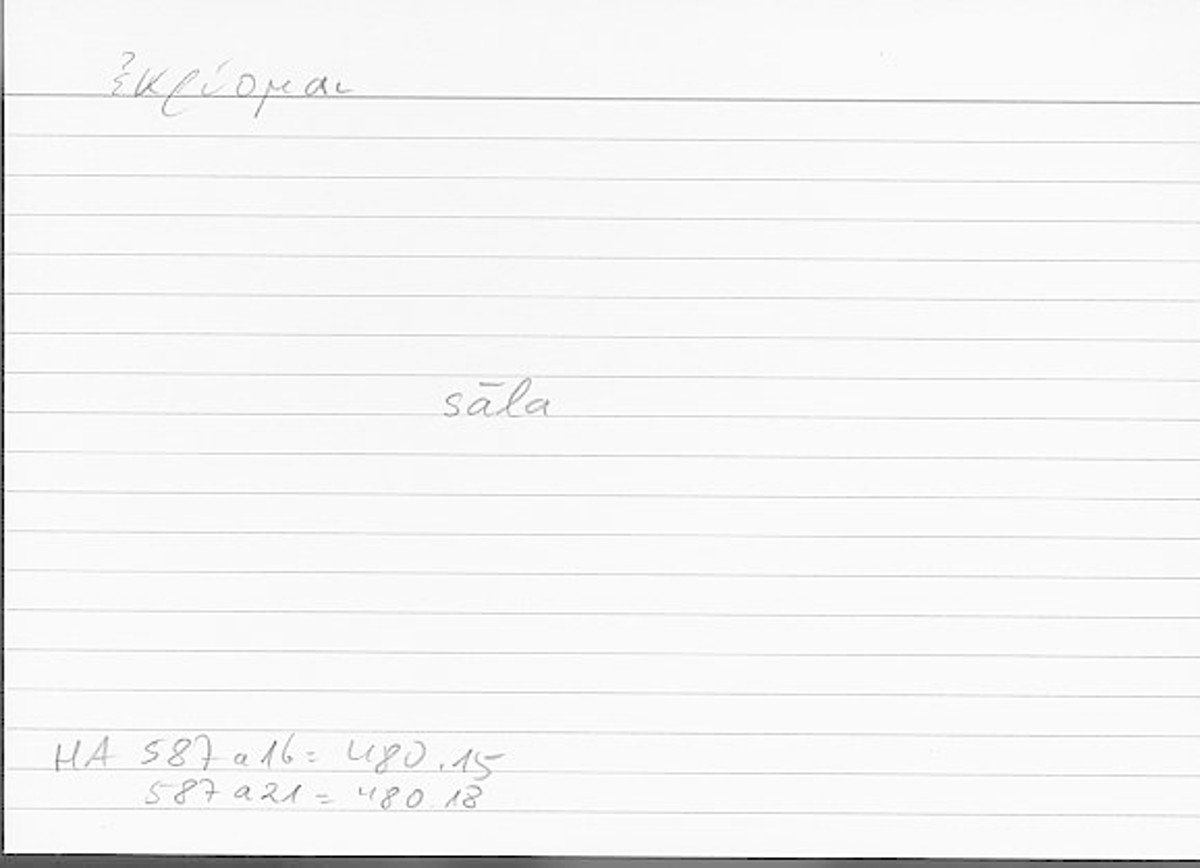 ἐκρέομαι
sāla
HA 587a16 = 480.15
587a21 = 480.18